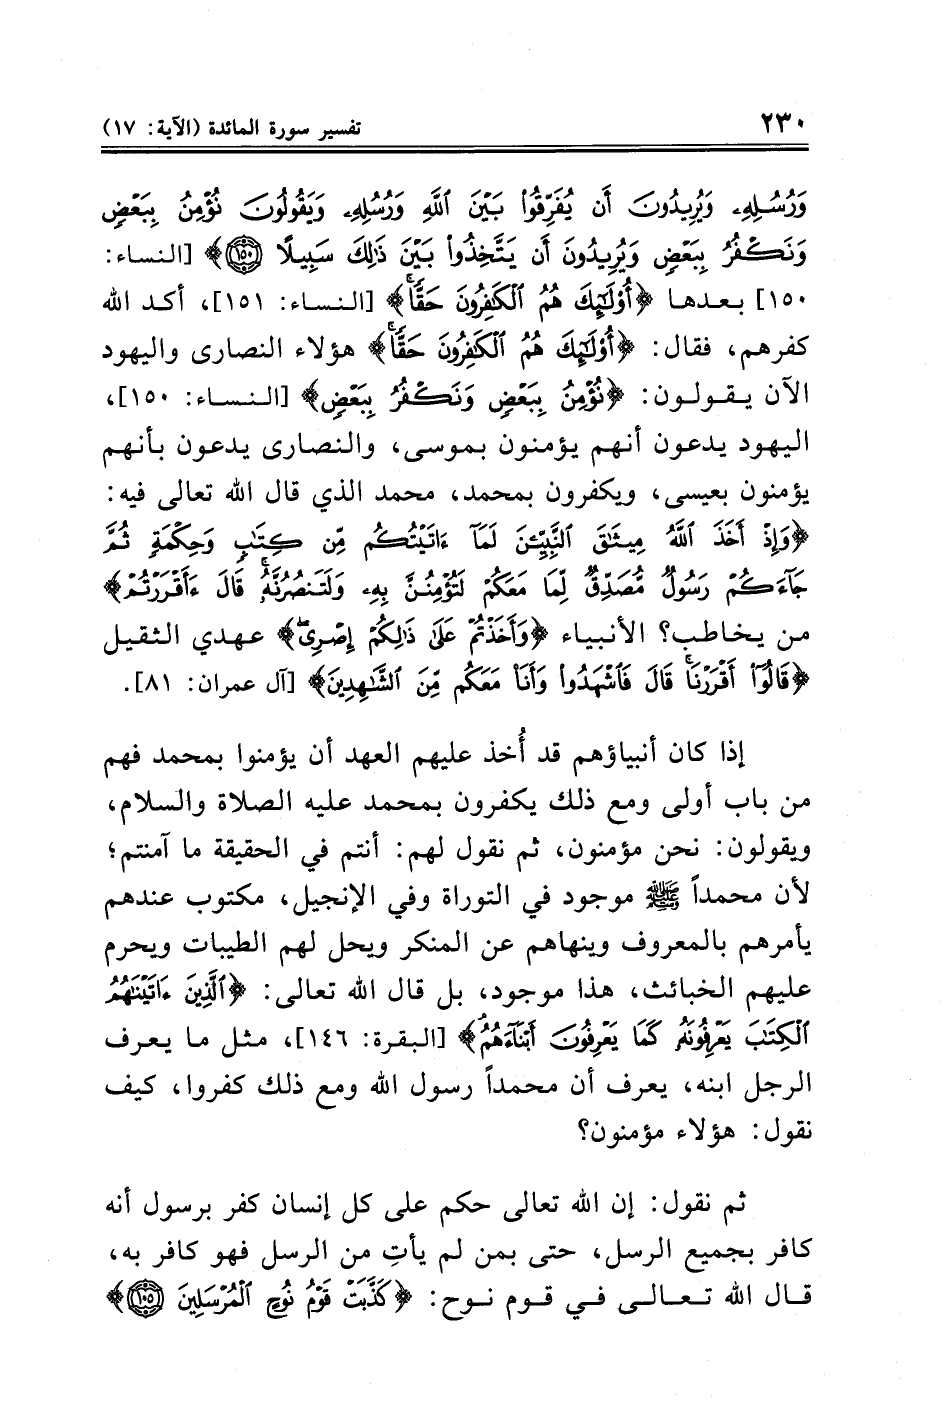 ٢٣٠ تفسير سورة المائدة (الآية: ١٧)
وَرُسُلِهِۦ وَيُرِيدُونَ أَن يُفَرِّقُوا۟ بَيْنَ ٱللَّهِ وَرُسُلِهِۦ وَيَقُولُونَ نُؤْمِنُ بِبَعْضٍ
وَنَكْفُرُ بِبَعْضٍ وَيُرِيدُونَ أَن يَتَّخِذُوا۟ بَيْنَ ذَٰلِكَ سَبِيلًا ١٥٠﴾ [النساء:
١٥٠] بعدها ﴿أُو۟لَٰٓئِكَ هُمُ ٱلْكَٰفِرُونَ حَقًّاۚ﴾ [النساء: ١٥١]، أكد الله
كفرهم، فقال: ﴿أُو۟لَٰٓئِكَ هُمُ ٱلْكَٰفِرُونَ حَقًّاۚ﴾ هؤلاء النصارى واليهود
الآن يقولون: ﴿نُؤْمِنُ بِبَعْضٍ وَنَكْفُرُ بِبَعْضٍ﴾ [النساء: ١٥٠]،
اليهود يدعون أنهم يؤمنون بموسى، والنصارى يدعون بأنهم
يؤمنون بعيسى، ويكفرون بمحمد، محمد الذي قال الله تعالى فيه:
﴿وَإِذْ أَخَذَ ٱللَّهُ مِيثَٰقَ ٱلنَّبِيِّـۧنَ لَمَآ ءَاتَيْتُكُم مِّن كِتَٰبٍ وَحِكْمَةٍ ثُمَّ
جَآءَكُمْ رَسُولٌ مُّصَدِّقٌ لِّمَا مَعَكُمْ لَتُؤْمِنُنَّ بِهِۦ وَلَتَنصُرُنَّهُۥۚ قَالَ ءَأَقْرَرْتُمْ﴾
من يخاطب؟ الأنبياء ﴿وَأَخَذْتُمْ عَلَىٰ ذَٰلِكُمْ إِصْرِىۖ﴾ عهدي الثقيل
﴿قَالُوٓا۟ أَقْرَرْنَاۚ قَالَ فَٱشْهَدُوا۟ وَأَنَا۠ مَعَكُم مِّنَ ٱلشَّٰهِدِينَ﴾ [آل عمران: ٨١].
إذا كان أنبياؤهم قد أُخذ عليهم العهد أن يؤمنوا بمحمد فهم
من باب أولى ومع ذلك يكفرون بمحمد عليه الصلاة والسلام،
ويقولون: نحن مؤمنون، ثم نقول لهم: أنتم في الحقيقة ما آمنتم؛
لأن محمداً ﷺ موجود في التوراة وفي الإنجيل، مكتوب عندهم
يأمرهم بالمعروف وينهاهم عن المنكر ويحل لهم الطيبات ويحرم
عليهم الخبائث، هذا موجود، بل قال الله تعالى: ﴿ٱلَّذِينَ ءَاتَيْنَٰهُمُ
ٱلْكِتَٰبَ يَعْرِفُونَهُۥ كَمَا يَعْرِفُونَ أَبْنَآءَهُمْۖ﴾ [البقرة: ١٤٦]، مثل ما يعرف
الرجل ابنه، يعرف أن محمداً رسول الله ومع ذلك كفروا، كيف
نقول: هؤلاء مؤمنون؟
ثم نقول: إن الله تعالى حكم على كل إنسان كفر برسول أنه
كافر بجميع الرسل، حتى بمن لم يأتِ من الرسل فهو كافر به،
قال الله تعالى في قوم نوح: ﴿كَذَّبَتْ قَوْمُ نُوحٍ ٱلْمُرْسَلِينَ ١٠٥﴾